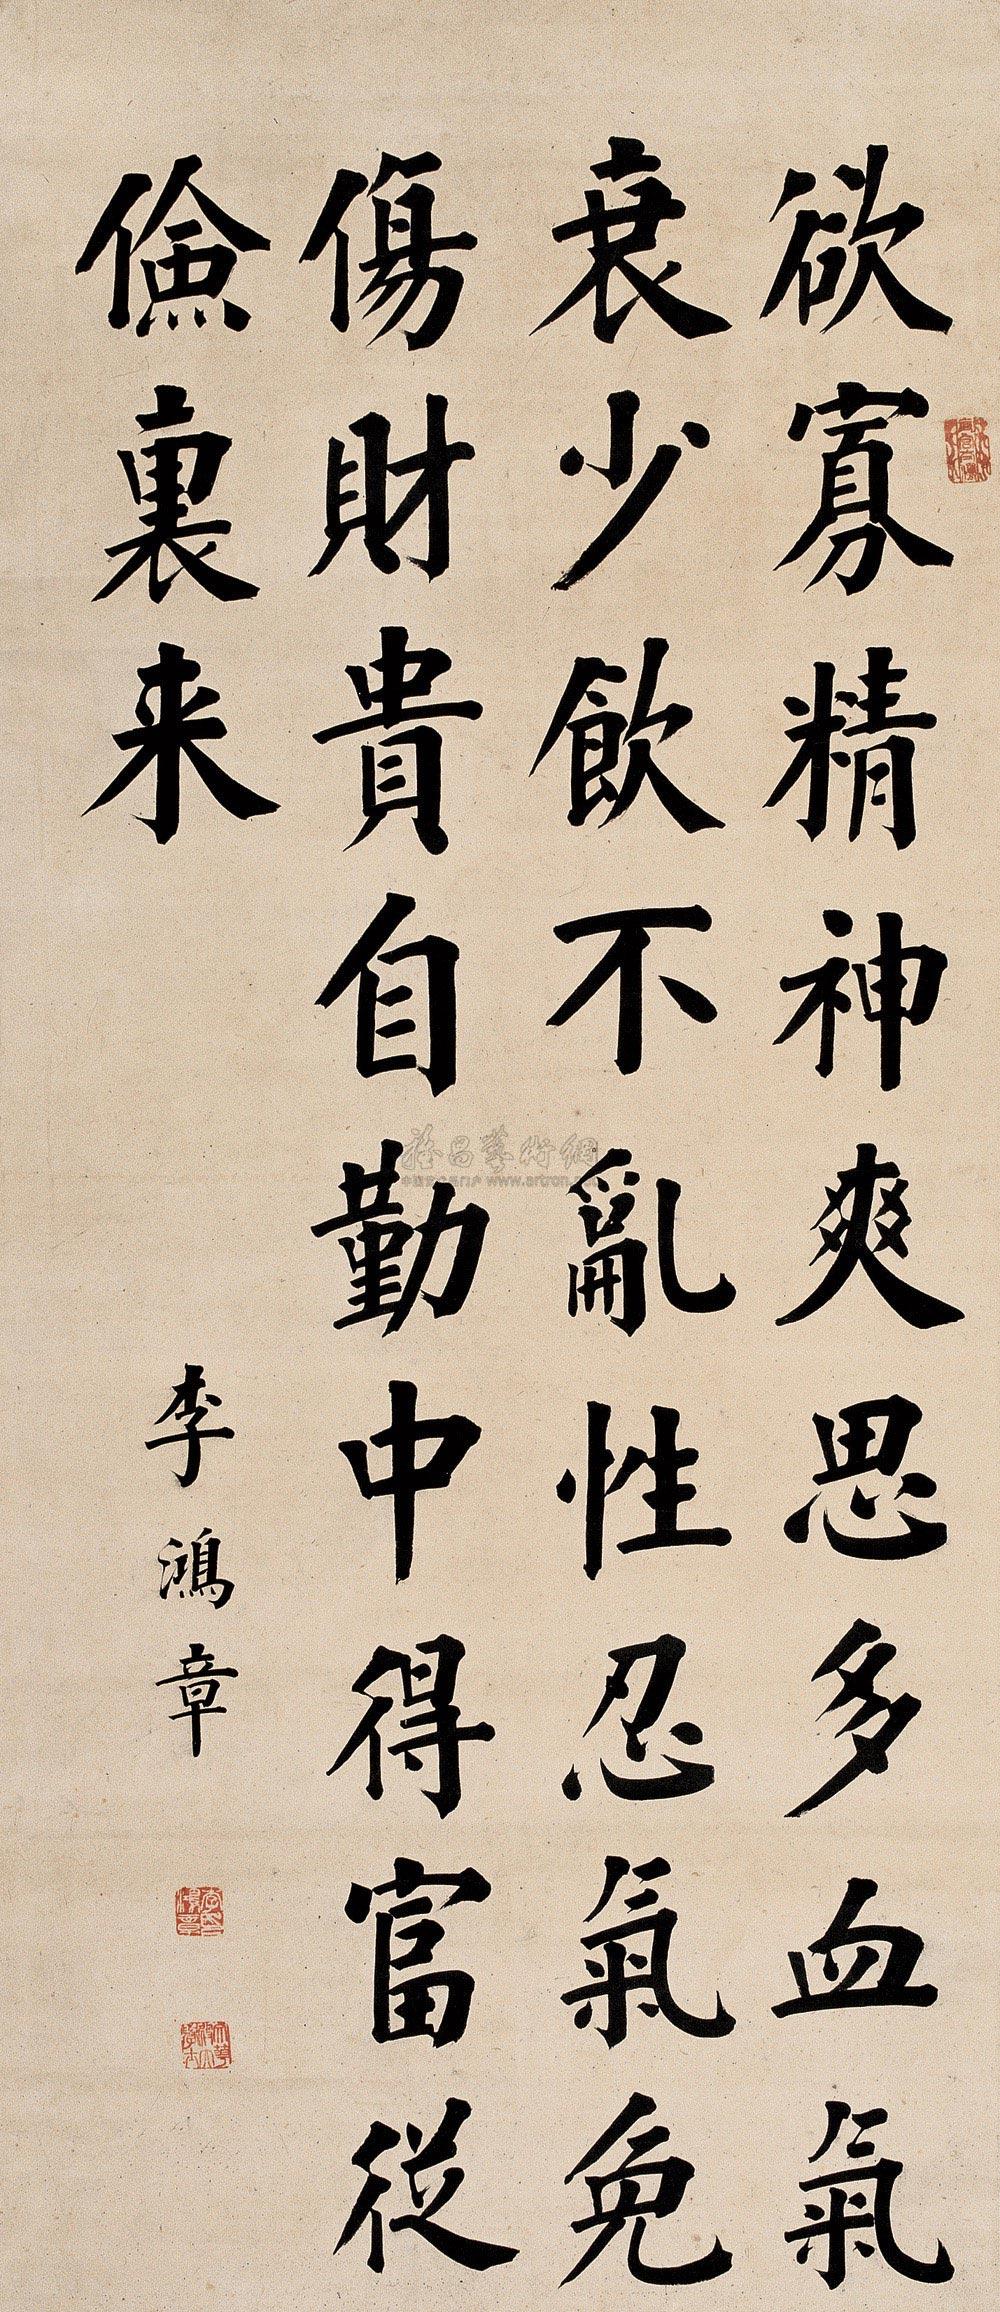 欲寡精神爽思多血氣
衰少飲不亂性忍氣免
傷財貴自勤中得富從
儉裏来
李鴻章
雅昌藝術網
www.artron.net